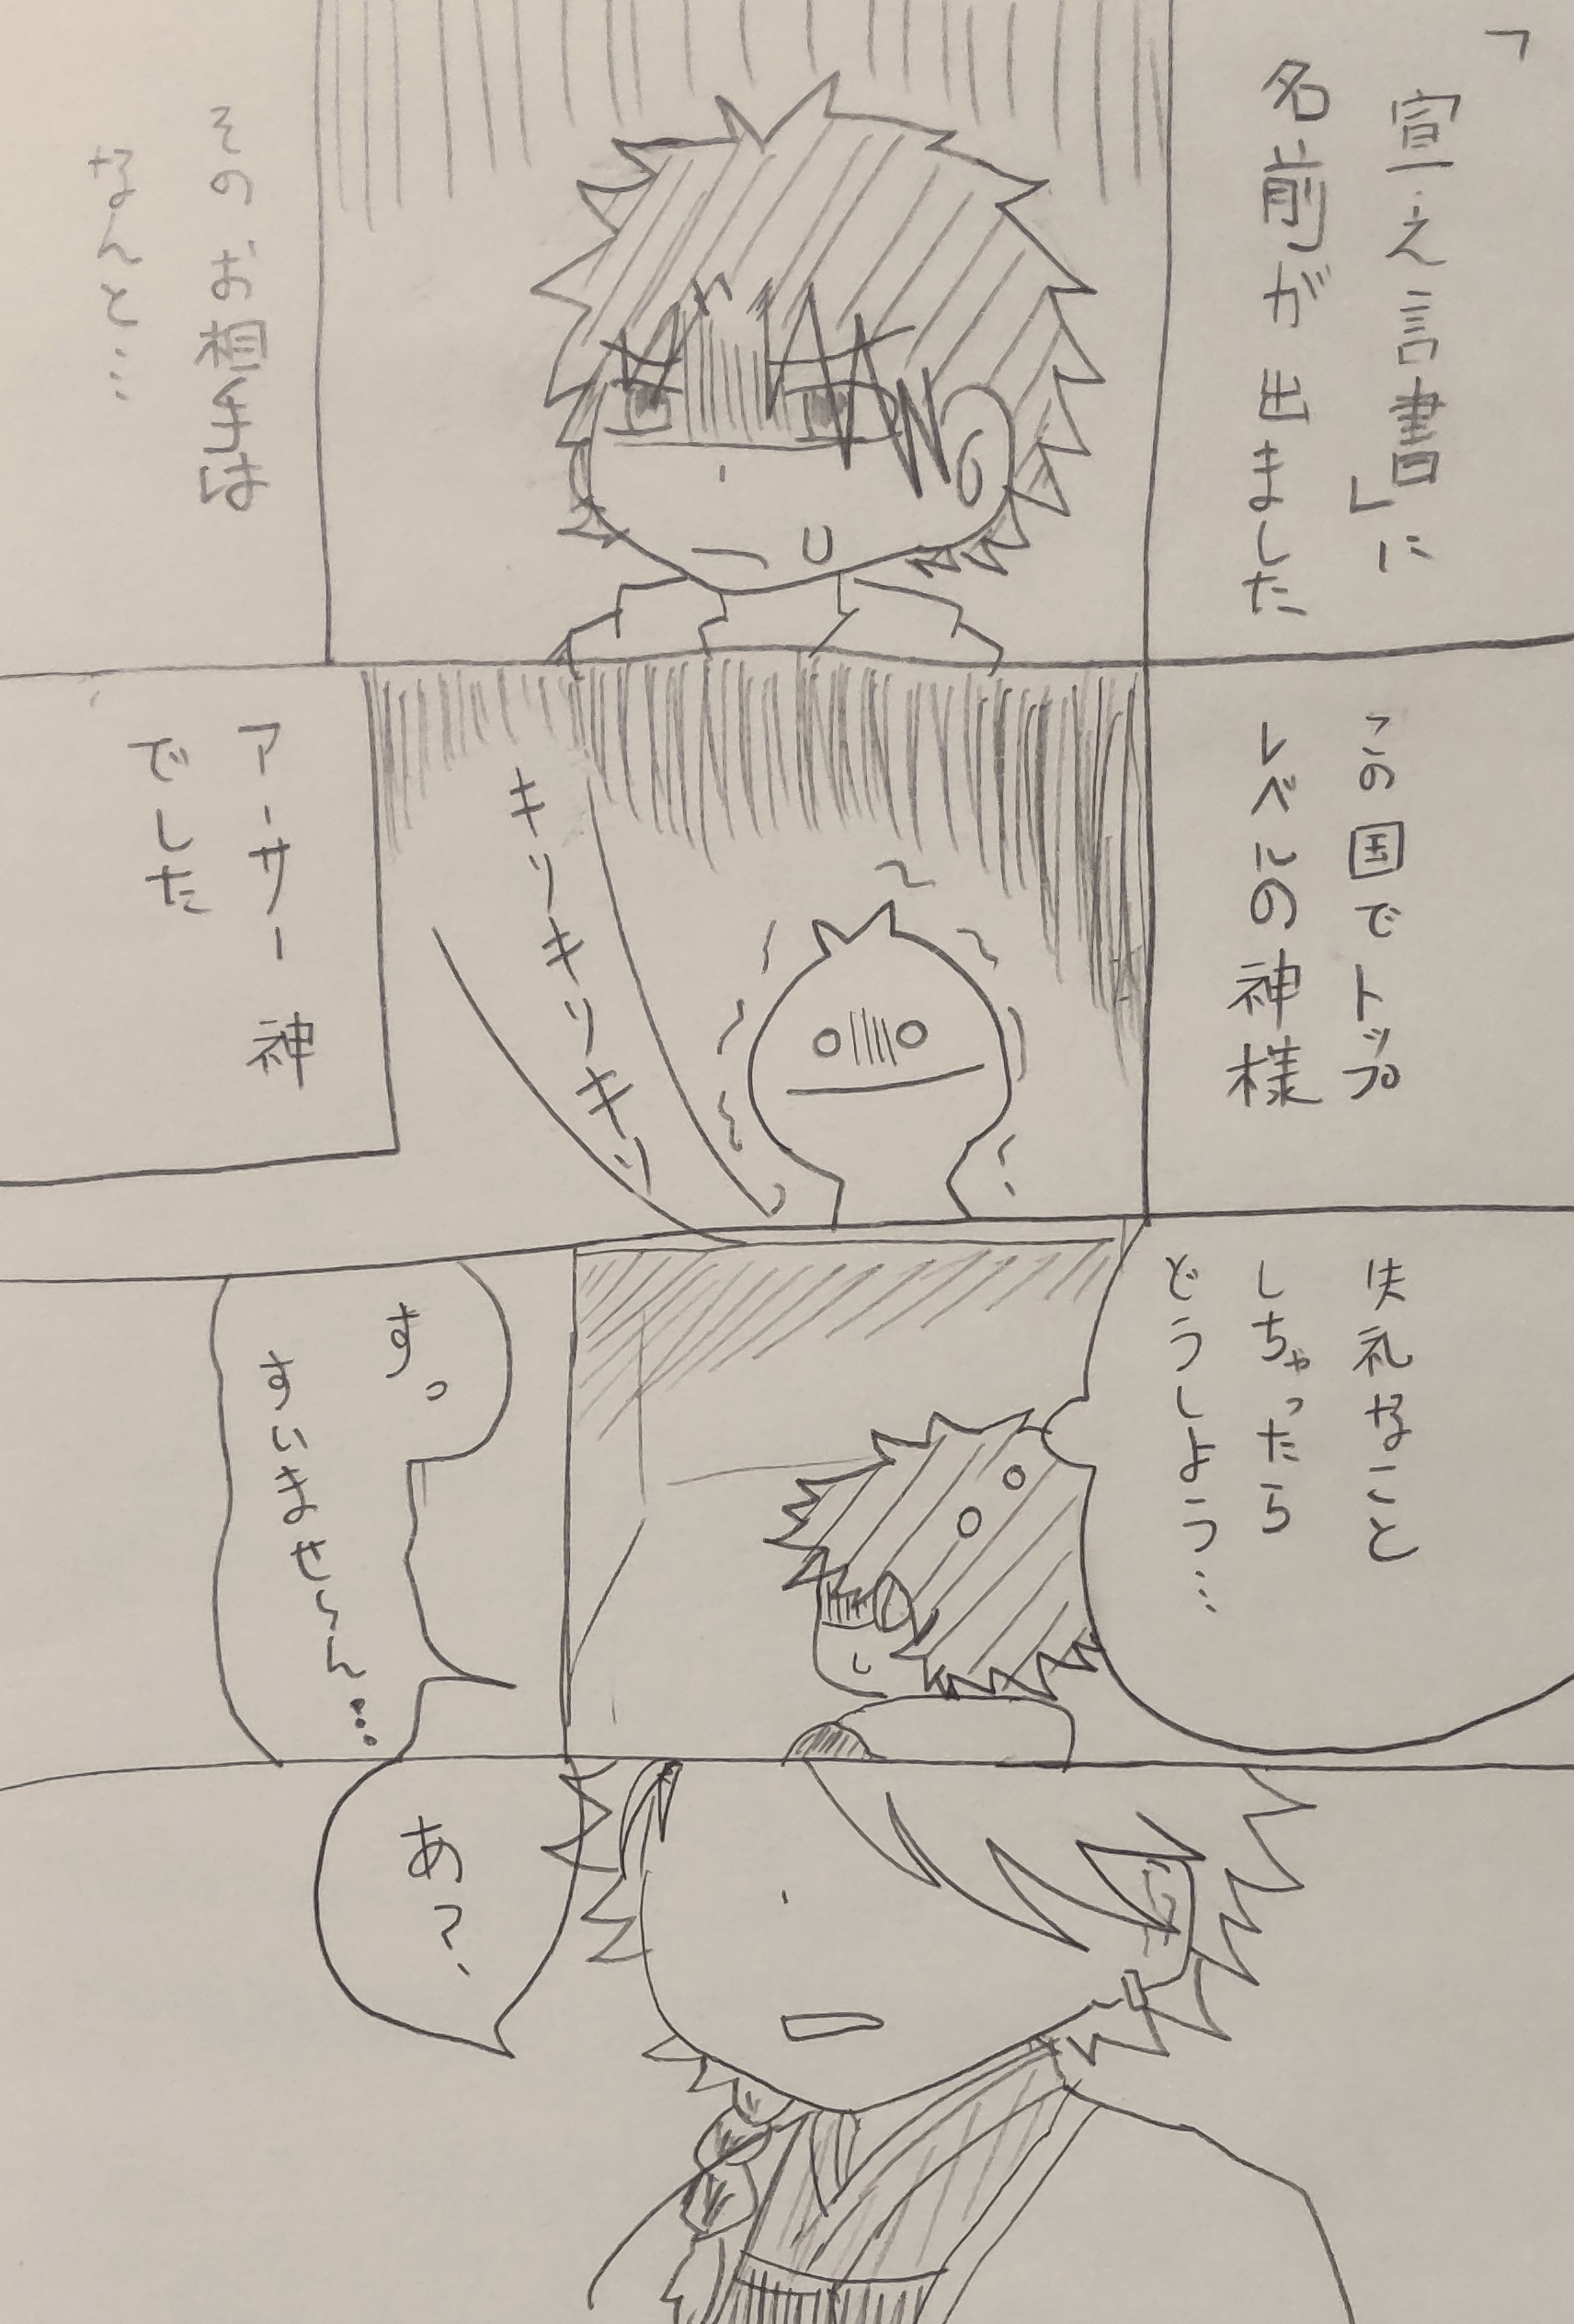 「宣え言書」に
名前が出ました
そのお相手は
なんと…
この国でトップ
レベルの神様
キリキリキリ
アーサー神
でした
失礼なこと
しちゃったら
どうしよう…
すっ
すいませ〜ん…
あ？